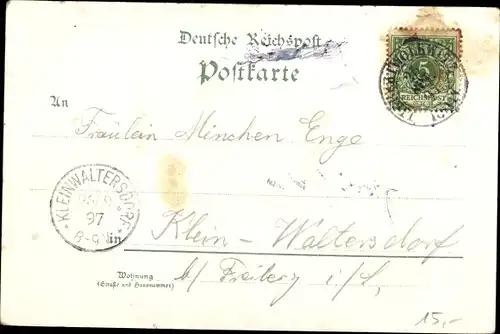 Deutsche Reichspost
Postkarte
5
REICHSPOST
An
Fräulein Minchen Enge
KLEINWALTERSDORF
97
8-9
in
Klein-Waltersdorf
b/ Freiberg i/S.
Wohnung
(Straße und Hausnummer)
15,-